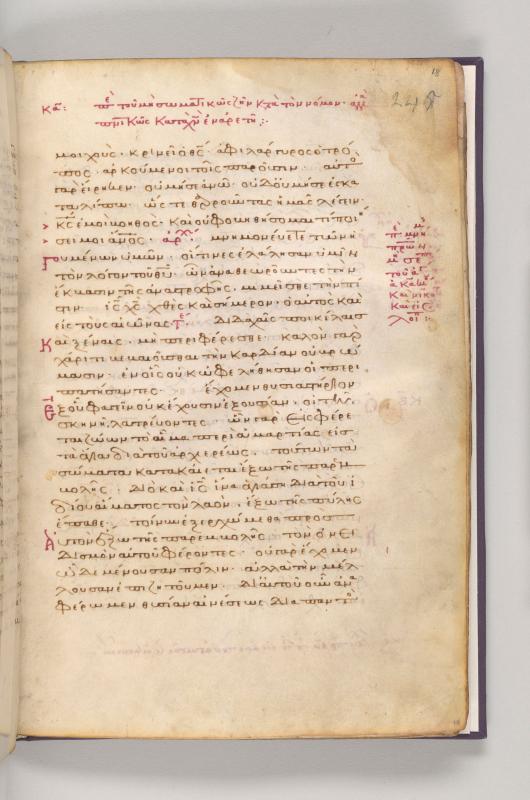 18
Κεφ: περὶ τοῦ μὴ σωματικῶς ζῆν κατὰ τὸν νόμον· ἀλλ
κατὰ Χν ἐν ἀρετῇ :·
μοιχοὺς· κρινεῖ ὁ θς· ἀφιλάργυρος ὁ τρό
πος· ἀρκούμενοι τοῖς παροῦσιν· αὐτὸς
γὰρ εἴρηκεν· οὐ μή σε ἀνῶ· οὐδ οὐ μή σε ἐγκα
ταλίπω· ὥστε θαρροῦντας ἡμᾶς λέγειν·
κς ἐμοὶ βοηθὸς· καὶ οὐ φοβηθήσομαι τί ποιή
σει μοι ανος· ἀρχ μνημονεύετε τῶν ἡ
γουμένων ὑμῶν· οἵτινες ἐλάλησαν ὑμῖν
τὸν λόγον τοῦ θυ· ὧν ἀναθεωροῦντες τὴν
ἔκβασιν τῆς ἀναστροφῆς, μιμεῖσθε τὴν πί
στιν· ις χς χθὲς καὶ σήμερον· ὁ αὐτὸς καὶ
εἰς τοὺς αἰῶνας τε διδαχαῖς ποικίλαις
καὶ ξέναις· μὴ περιφέρεσθε· καλὸν γὰρ
χάριτι βεβαιοῦσθαι τὴν καρδίαν οὐ βρώ
μασιν· ἐν οἷς οὐκ ὠφελήθησαν οἱ περι
πατήσαντες· ἔχομεν θυσιαστήριον
ἐξ οὗ φαγεῖν οὐκ ἔχουσιν ἐξουσίαν· οἱ τῇ
σκηνῇ λατρεύοντες· ὧν γὰρ εἰσφέρε
ται ζώων τὸ αἷμα περὶ ἁμαρτίας εἰς
τὰ ἅγια διὰ τοῦ ἀρχιερέως· τούτων τὰ
σώματα κατακαίεται ἔξω τῆς παρεμ
βολῆς· Διὸ καὶ ις ἵνα ἁγιάσῃ διὰ τοῦ ἰ
δίου αἵματος τὸν λαὸν· ἔξω τῆς πύλης
ἔπαθε· τοίνυν ἐξερχώμεθα πρὸς
αὐτὸν ἔξω τῆς παρεμβολῆς· τὸν ὀνει
δισμὸν αὐτοῦ φέροντες· οὐ γὰρ ἔχομεν
ὧδε μένουσαν πόλιν· ἀλλὰ τὴν μέλ
λουσαν ἐπιζητοῦμεν· Δι αὐτοῦ οὖν ἀνα
φέρωμεν θυσίαν αἰνέσεως διαπαντὸς